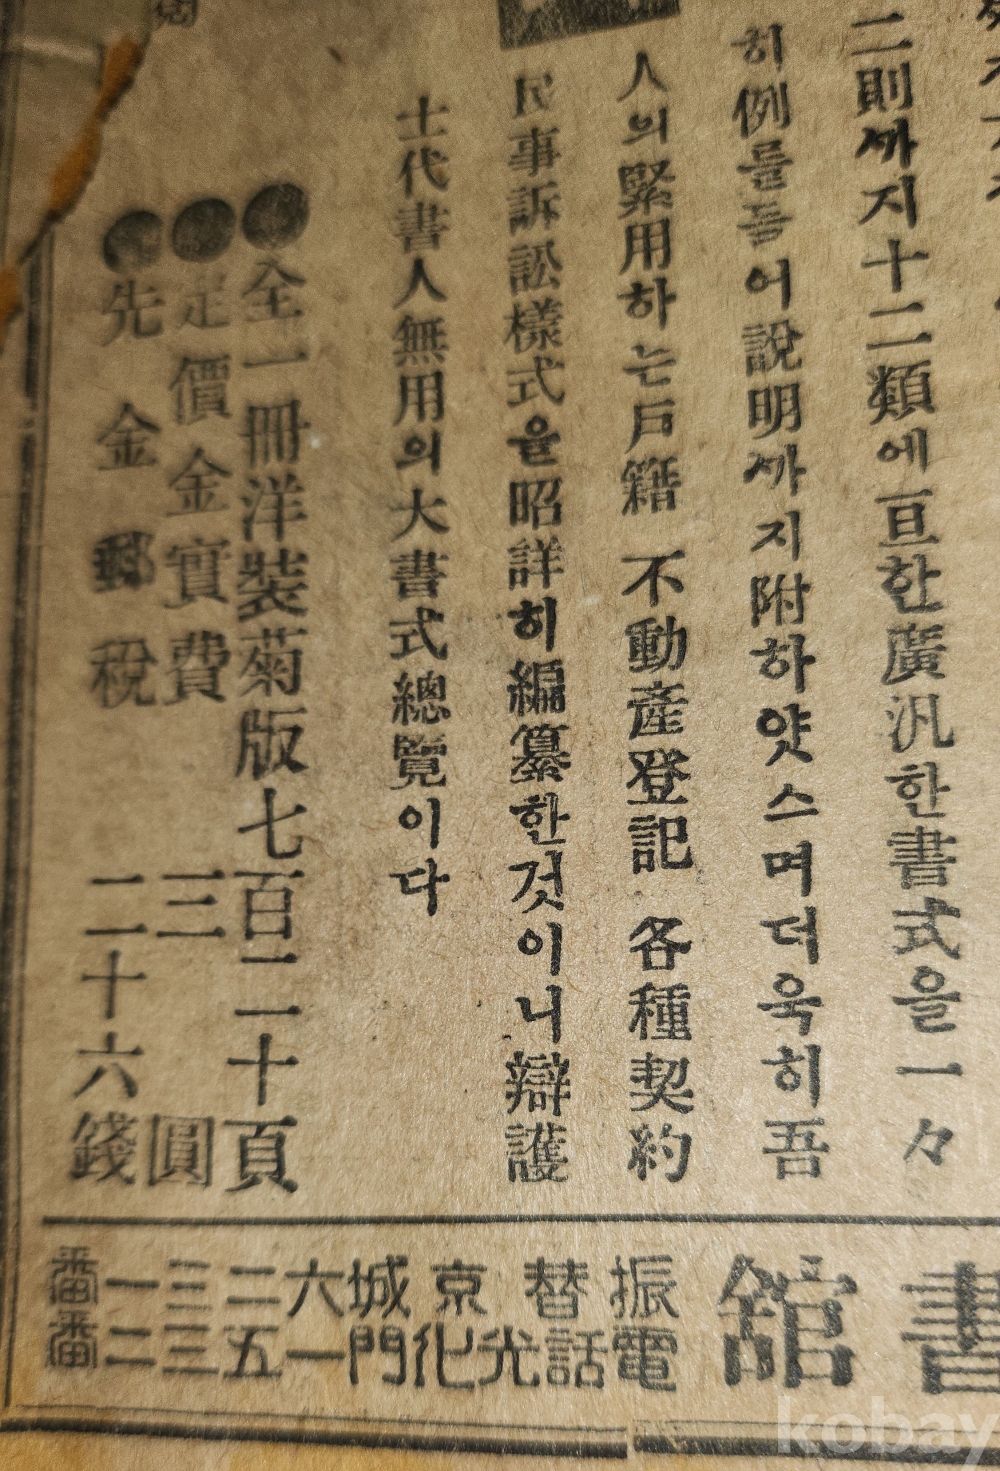 二則까지十二類에亘한廣汎한書式을一々
히例를들어說明까지附하얏스며더욱히吾
人의緊用하는戶籍 不動產登記 各種契約
民事訴訟樣式을昭詳히編纂한것이니辯護
士代書人無用의大書式總覽이다
●全一冊洋裝菊版七百二十頁
●定價金實費三圓
●先金郵稅二十六錢
書館
振替京城六二三一番
電話光化門一五三二番
kobay